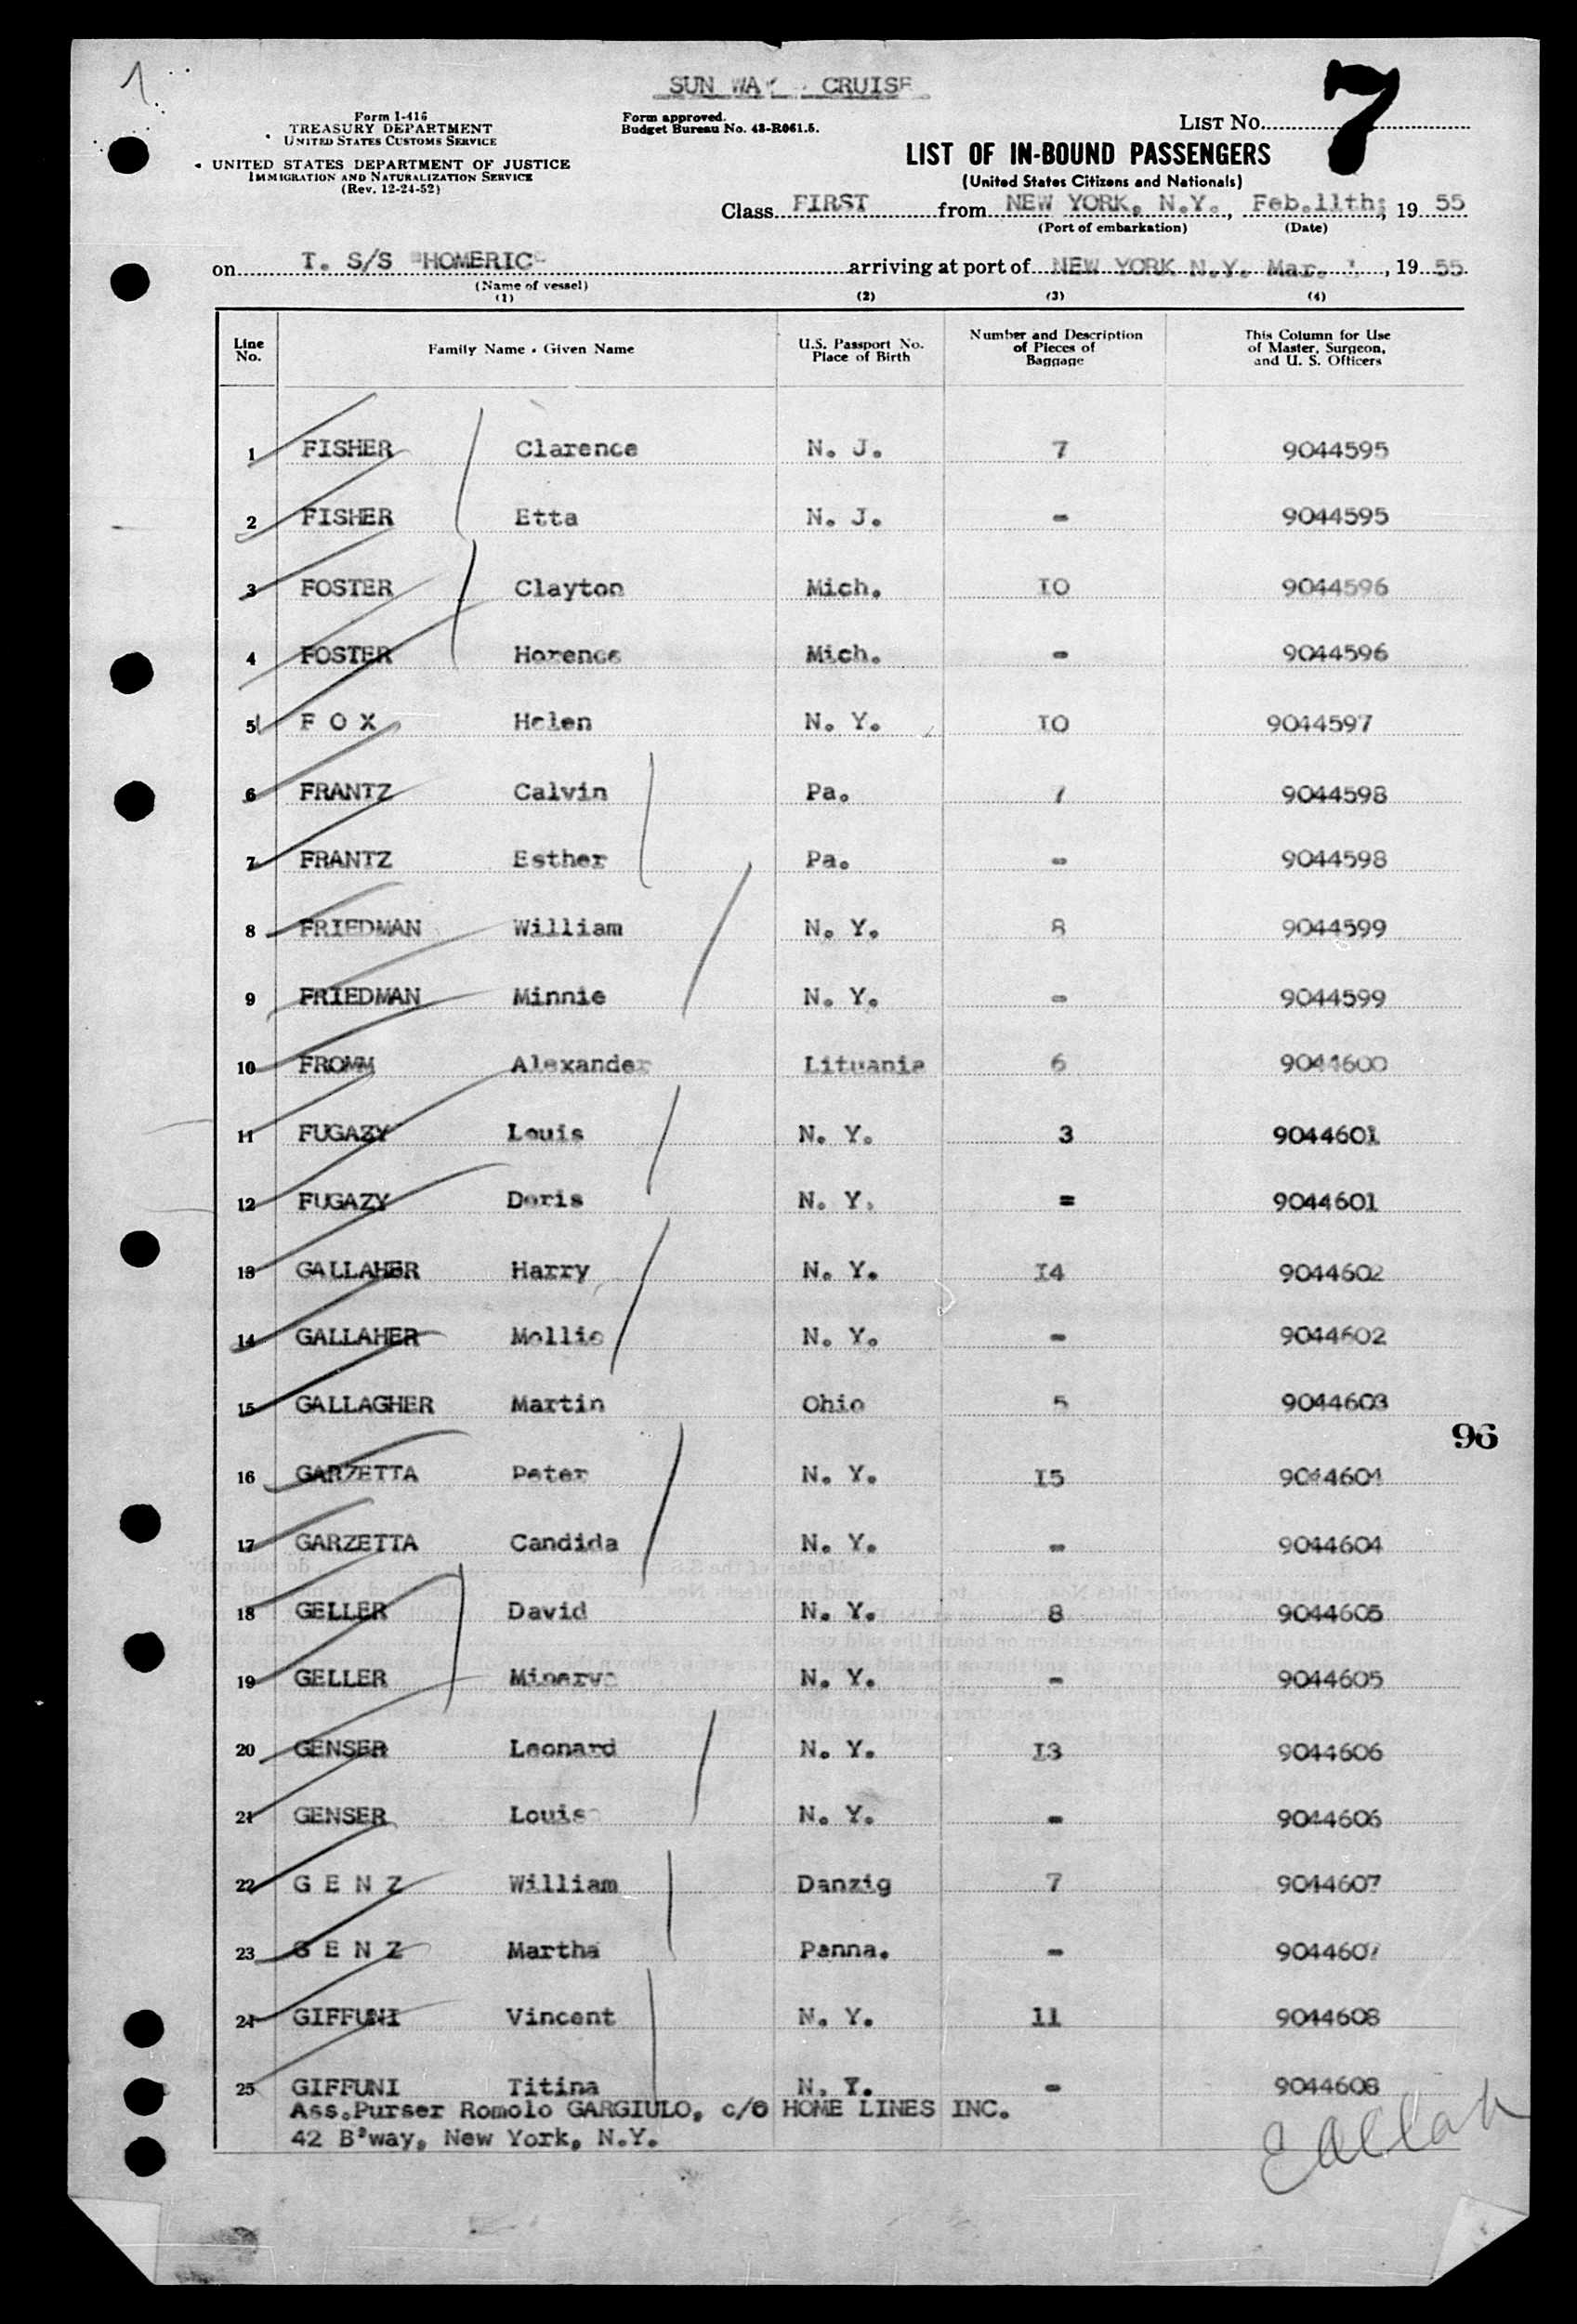 1
SUN WAY CRUISE
7
Form I-416
TREASURY DEPARTMENT
UNITED STATES CUSTOMS SERVICE
UNITED STATES DEPARTMENT OF JUSTICE
IMMIGRATION AND NATURALIZATION SERVICE
(Rev. 12-24-52)
Form approved.
Budget Bureau No. 43-R061.5.
LIST NO.
LIST OF IN-BOUND PASSENGERS
(United States Citizens and Nationals)
Class FIRST from NEW YORK, N.Y., Feb.11th; 19 55
(Port of embarkation) (Date)
on T. S/S "HOMERIC" arriving at port of NEW YORK N.Y. Mar. , 19 55
(Name of vessel)
(1) (2) (3) (4)
Line No. Family Name - Given Name U.S. Passport No. Place of Birth Number and Description of Pieces of Baggage This Column for Use of Master, Surgeon, and U. S. Officers
1 FISHER Clarence N. J. 7 9044595
2 FISHER Etta N. J. - 9044595
3 FOSTER Clayton Mich. IO 9044596
4 FOSTER Horence Mich. - 9044596
5 F O X Helen N. Y. IO 9044597
6 FRANTZ Calvin Pa. 9044598
7 FRANTZ Esther Pa. - 9044598
8 FRIEDMAN William N. Y. 8 9044599
9 FRIEDMAN Minnie N. Y. - 9044599
10 FROMM Alexander Lituania 6 9044600
11 FUGAZY Louis N. Y. 3 9044601
12 FUGAZY Doris N. Y. = 9044601
13 GALLAHER Harry N. Y. I4 9044602
14 GALLAHER Mollie N. Y. - 9044602
15 GALLAGHER Martin Ohio 5 9044603
96
16 GARZETTA Peter N. Y. I5 9044604
17 GARZETTA Candida N. Y. - 9044604
18 GELLER David N. Y. 8 9044605
19 GELLER Minerva N. Y. - 9044605
20 GENSER Leonard N. Y. I3 9044606
21 GENSER Louis N. Y. - 9044606
22 G E N Z William Danzig 7 9044607
23 G E N Z Martha Panna. - 9044607
24 GIFFUNI Vincent N. Y. 11 9044608
25 GIFFUNI Titina N. Y. - 9044608
Ass.Purser Romolo GARGIULO, c/o HOME LINES INC.
42 B'way, New York, N.Y.